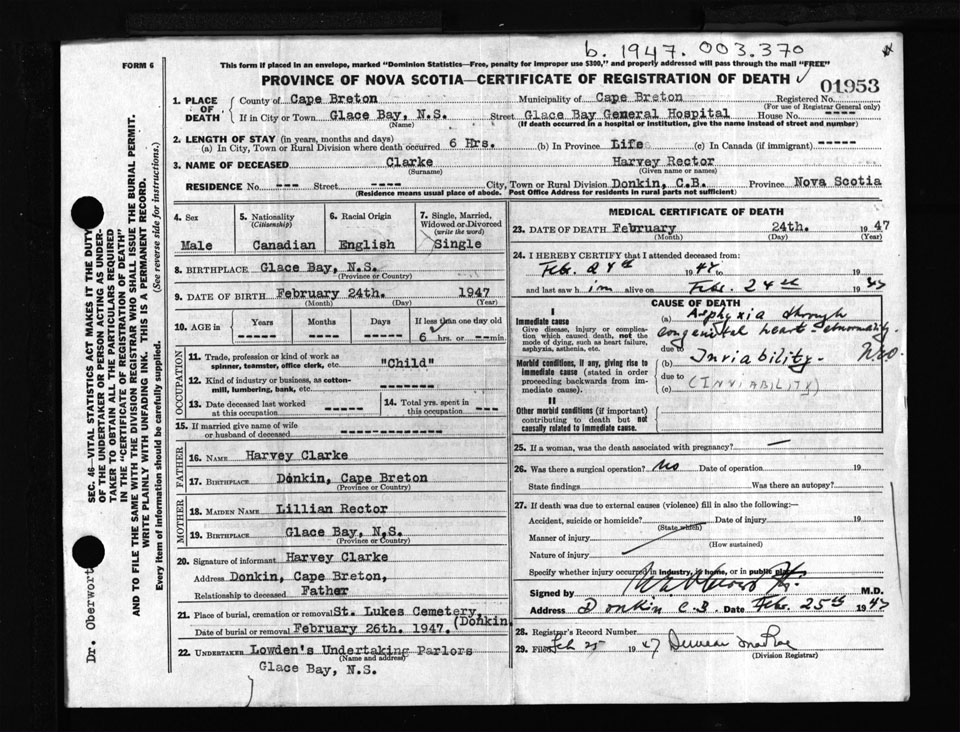 b. 1947. 003.370
FORM 6
This form if placed in an envelope, marked "Dominion Statistics—Free, penalty for improper use $300," and properly addressed will pass through the mail "FREE"
PROVINCE OF NOVA SCOTIA—CERTIFICATE OF REGISTRATION OF DEATH
01953
1. PLACE OF DEATH
County of Cape Breton Municipality of Cape Breton Registered No.
(For use of Registrar General only)
If in City or Town Glace Bay, N.S. Street Glace Bay General Hospital House No. ----
(Name) (If death occurred in a hospital or institution, give the name instead of street and number)
2. LENGTH OF STAY (in years, months and days)
(a) In City, Town or Rural Division where death occurred 6 Hrs. (b) In Province Life (c) In Canada (if immigrant) -----
3. NAME OF DECEASED Clarke Harvey Rector
(Surname) (Given name or names)
RESIDENCE No. --- Street ---- City, Town or Rural Division Donkin, C.B. Province Nova Scotia
(Residence means usual place of abode. Post Office Address for residents in rural parts not sufficient)
4. Sex
Male
5. Nationality
(Citizenship)
Canadian
6. Racial Origin
English
7. Single, Married, Widowed or Divorced
(write the word)
Single
8. BIRTHPLACE Glace Bay, N.S.
(Province or Country)
9. DATE OF BIRTH February 24th. 1947
(Month) (Day) (Year)
10. AGE in Years Months Days If less than one day old
6 hrs. or -- min.
OCCUPATION
11. Trade, profession or kind of work as spinner, teamster, office clerk, etc. "Child"
12. Kind of industry or business, as cotton-mill, lumbering, bank, etc. -------
13. Date deceased last worked at this occupation -----
14. Total yrs. spent in this occupation ---
15. If married give name of wife or husband of deceased -------
FATHER
16. NAME Harvey Clarke
17. BIRTHPLACE Donkin, Cape Breton
(Province or Country)
MOTHER
18. MAIDEN NAME Lillian Rector
19. BIRTHPLACE Glace Bay, N.S.
(Province or Country)
20. Signature of informant Harvey Clarke
Address Donkin, Cape Breton,
Relationship to deceased Father
21. Place of burial, cremation or removal St. Lukes Cemetery,
(Donkin.
Date of burial or removal February 26th. 1947.
22. UNDERTAKER Lowden's Undertaking Parlors
(Name and address)
Glace Bay, N.S.
MEDICAL CERTIFICATE OF DEATH
23. DATE OF DEATH February 24th. 1947
(Month) (Day) (Year)
24. I HEREBY CERTIFY that I attended deceased from:
Feb. 24th 1947 to 19
and last saw him alive on Feb. 24th 1947
CAUSE OF DEATH
I
Immediate cause
Give disease, injury or complication which caused death, not the mode of dying, such as heart failure, asphyxia, asthenia, etc.
(a) Asphyxia through
congenital heart abnormality.
due to
Morbid conditions, if any, giving rise to immediate cause (stated in order proceeding backwards from immediate cause).
(b) Inviability-
due to
(c) (INVIABILITY)
II
Other morbid conditions (if important) contributing to death but not causally related to immediate cause.
25. If a woman, was the death associated with pregnancy? —
26. Was there a surgical operation? No Date of operation 19
State findings Was there an autopsy?
27. If death was due to external causes (violence) fill in also the following:—
Accident, suicide or homicide? Date of injury 19
(State which)
Manner of injury
(How sustained)
Nature of injury
Specify whether injury occurred in industry, in home, or in public place
Signed by M.D.
Address Donkin C.B. Date Feb. 25th 1947
28. Registrar's Record Number
29. Filed Feb 25 1947
(Division Registrar)
SEC. 46—VITAL STATISTICS ACT MAKES IT THE DUTY
OF THE UNDERTAKER OR PERSON ACTING AS UNDER-
TAKER TO OBTAIN ALL THE PARTICULARS REQUIRED
IN THE "CERTIFICATE OF REGISTRATION OF DEATH"
AND TO FILE THE SAME WITH THE DIVISION REGISTRAR WHO SHALL ISSUE THE BURIAL PERMIT.
WRITE PLAINLY WITH UNFADING INK. THIS IS A PERMANENT RECORD.
Every item of information should be carefully supplied. (See reverse side for instructions.)
Dr. Oberwort